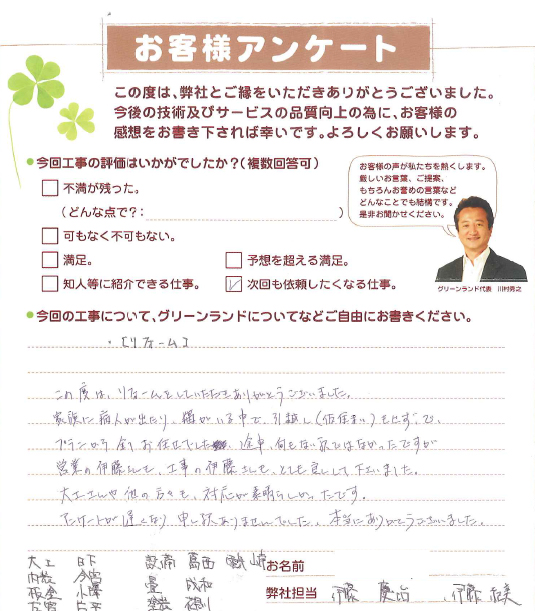 お客様アンケート
この度は、弊社とご縁をいただきありがとうございました。
今後の技術及びサービスの品質向上の為に、お客様の
感想をお書き下されば幸いです。よろしくお願いします。
今回工事の評価はいかがでしたか?(複数回答可)
不満が残った。
(どんな点で?: )
可もなく不可もない。
満足。
予想を超える満足。
知人等に紹介できる仕事。
次回も依頼したくなる仕事。
お客様の声が私たちを熱くします。
厳しいお言葉、ご提案、
もちろんお誉めの言葉など
どんなことでも結構です。
是非お聞かせください。
グリーンランド代表 川村秀之
今回の工事について、グリーンランドについてなどご自由にお書きください。
・[リフォーム]
この度は、リフォームをしていただきありがとうございました。
家族に病人が出たり、猫がいる中で、引越し(仮住まい)もせずで、
プランから全てお任せでした 途中、何もない訳ではなかったですが
営業の伊藤さんも、工事の伊藤さんも、とても良くして下さいました。
大工さんや他の方々も、対応が素晴らしかったです。
アンケートが遅くなり申し訳ありませんでした。本当にありがとうございました。
大工 日下 設備 葛西
内装 今宮 畳 成和
板金 小澤 塗装
お名前
弊社担当 伊藤 伊藤